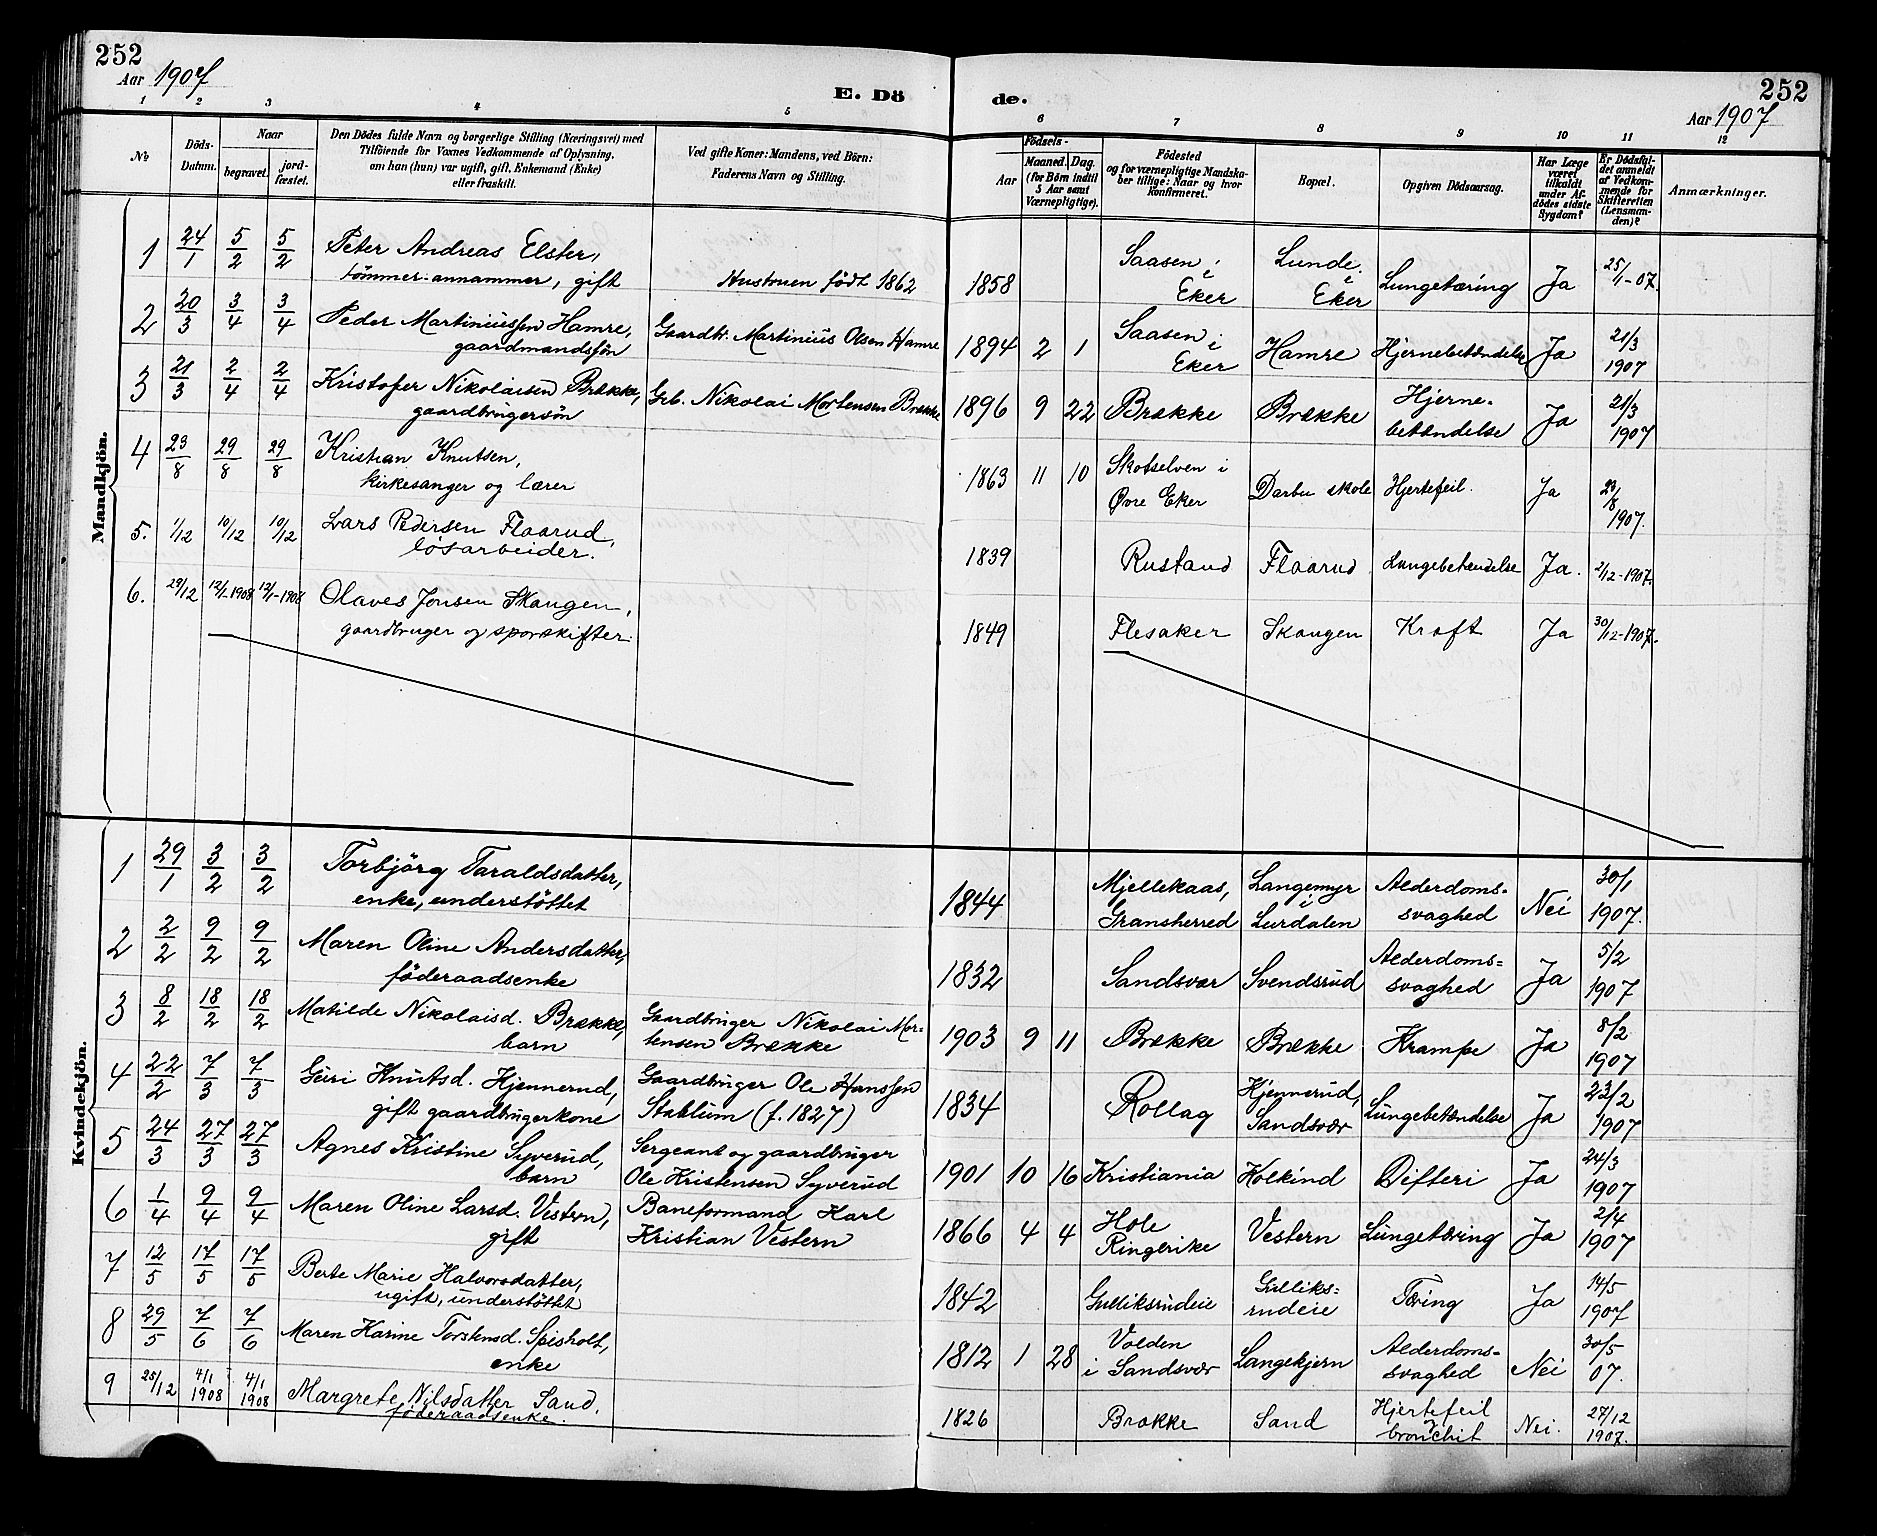 252
Aar 1907
E. Dö
de.
252
Aar 1907
1 2 3 4 5
6 7 8 9 10 11 12
No
Döds-
Datum.
Naar
begravet.
jord-
fæstet.
Den Dödes fulde Navn og borgerlige Stilling (Næringsvei) med
Tilföiende for Voxnes Vedkommende af Oplysning,
om han (hun) var ugift, gift, Enkemand (Enke)
eller fraskilt.
Ved gifte Koner: Mandens, ved Börn:
Faderens Navn og Stilling.
Födsels-
Aar
Maaned. Dag.
(for Børn indtil
5 Aar samt
Værnepligtige).
Födested
og for værnepligtige Mandska-
ber tillige: Naar og hvor
konfirmeret.
Bopæl.
Opgiven Dödsaarsag.
Har Læge
været
tilkaldt
under Af-
dødes sidste
Sygdom?
Er Dödsfal-
det anmeldt
af Vedkom-
mende for
Skifteretten
(Lensman-
den)?
Anmærkninger.
Mandkjön.
1 24/1 5/2 5/2 Peter Andreas Elster,
tömmer-annammer, gift Hustruen födt 1862 1858 Saasen i Eker Lunde i Eker Lungetæring Ja 25/1-07.
2 20/3 3/4 3/4 Peder Martiniussen Hamre,
gaardmandssön Gaardbr. Martinius Olsen Hamre 1894 2 1 Saasen i Eker Hamre Hjernebetændelse Ja 21/3 1907
3 21/3 2/4 2/4 Kristofer Nikolaisen Brække,
gaardbrugersön Grb. Nikolai Mortensen Brække 1896 9 22 Brække Brække Hjerne-
betændelse Ja 21/3 1907
4 23/8 29/8 29/8 Kristian Knutsen,
kirkesanger og lærer 1863 11 10 Skotselven i
Øvre Eker Darbu skole Hjertefeil. Ja 23/8 1907.
5. 1/12 10/12 10/12 Lars Pedersen Flaarud,
lösarbeider. 1839 Rustand Flaarud Lungebetændelse Ja. 2/12-1907.
6. 29/12 12/1-1908 12/1-1908 Olaves Jonsen Skaugen,
gaardbruger og sporskifter. 1849 Flesaker Skaugen Kræft Ja 30/12-1907.
Kvindekjön.
1 29/1 3/2 3/2 Torbjörg Taraldsdatter,
enke, understöttet 1844 Mjellekaas,
Gransherred Langemyr
i
Lurdalen Alderdoms-
svaghed Nei 30/1
1907.
2 2/2 9/2 9/2 Maren Oline Andersdatter,
föderaadsenke 1832 Sandsvær Svendsrud Alderdoms=
svaghed Ja 5/2
1907
3 8/2 18/2 18/2 Matilde Nikolaisd. Brække,
barn Gaardbruger Nikolai Mor-
tensen Brække 1903 9 11 Brække Brække Krampe Ja 8/2
1907
4 22/2 7/3 7/3 Guri Knutsd. Hjennerud,
gift gaardbrugerkone Gaardbruger Ole Hanssen
Stablum (f. 1827) 1834 Rollag Hjennerud,
Sandsvær Lungebetændelse Ja 23/2
1907
5 24/3 27/3 27/3 Agnes Kristine Syverud,
barn Sergeant og gaardbruger
Ole Kristensen Syverud 1901 10 16 Kristiania Kolkind Difteri Ja 24/3
1907
6 1/4 9/4 9/4 Maren Oline Larsd. Vestern,
gift Baneformand Karl
Kristian Vestern 1866 4 4 Hole
Ringerike Vestern Lungetæring Ja 2/4
1907
7 12/5 17/5 17/5 Berte Marie Halvorsdatter,
ugift, understöttet 1842 Gulliksrudeie Gulliks=
rudeie Tæring Ja 14/5
1907
8 29/5 7/6 7/6 Maren Karine Torstensd. Spisholt,
enke 1812 1 28 Volden
i Sandsvær Langekjern Alderdoms-
svaghed Nei 30/5
07.
9 25/12 4/1 1908 4/1 1908 Margrete Nilsdatter Sand,
föderaadsenke. 1826 Brække Sand Hjertefeil
&
bronchit Nei. 27/12
1907.